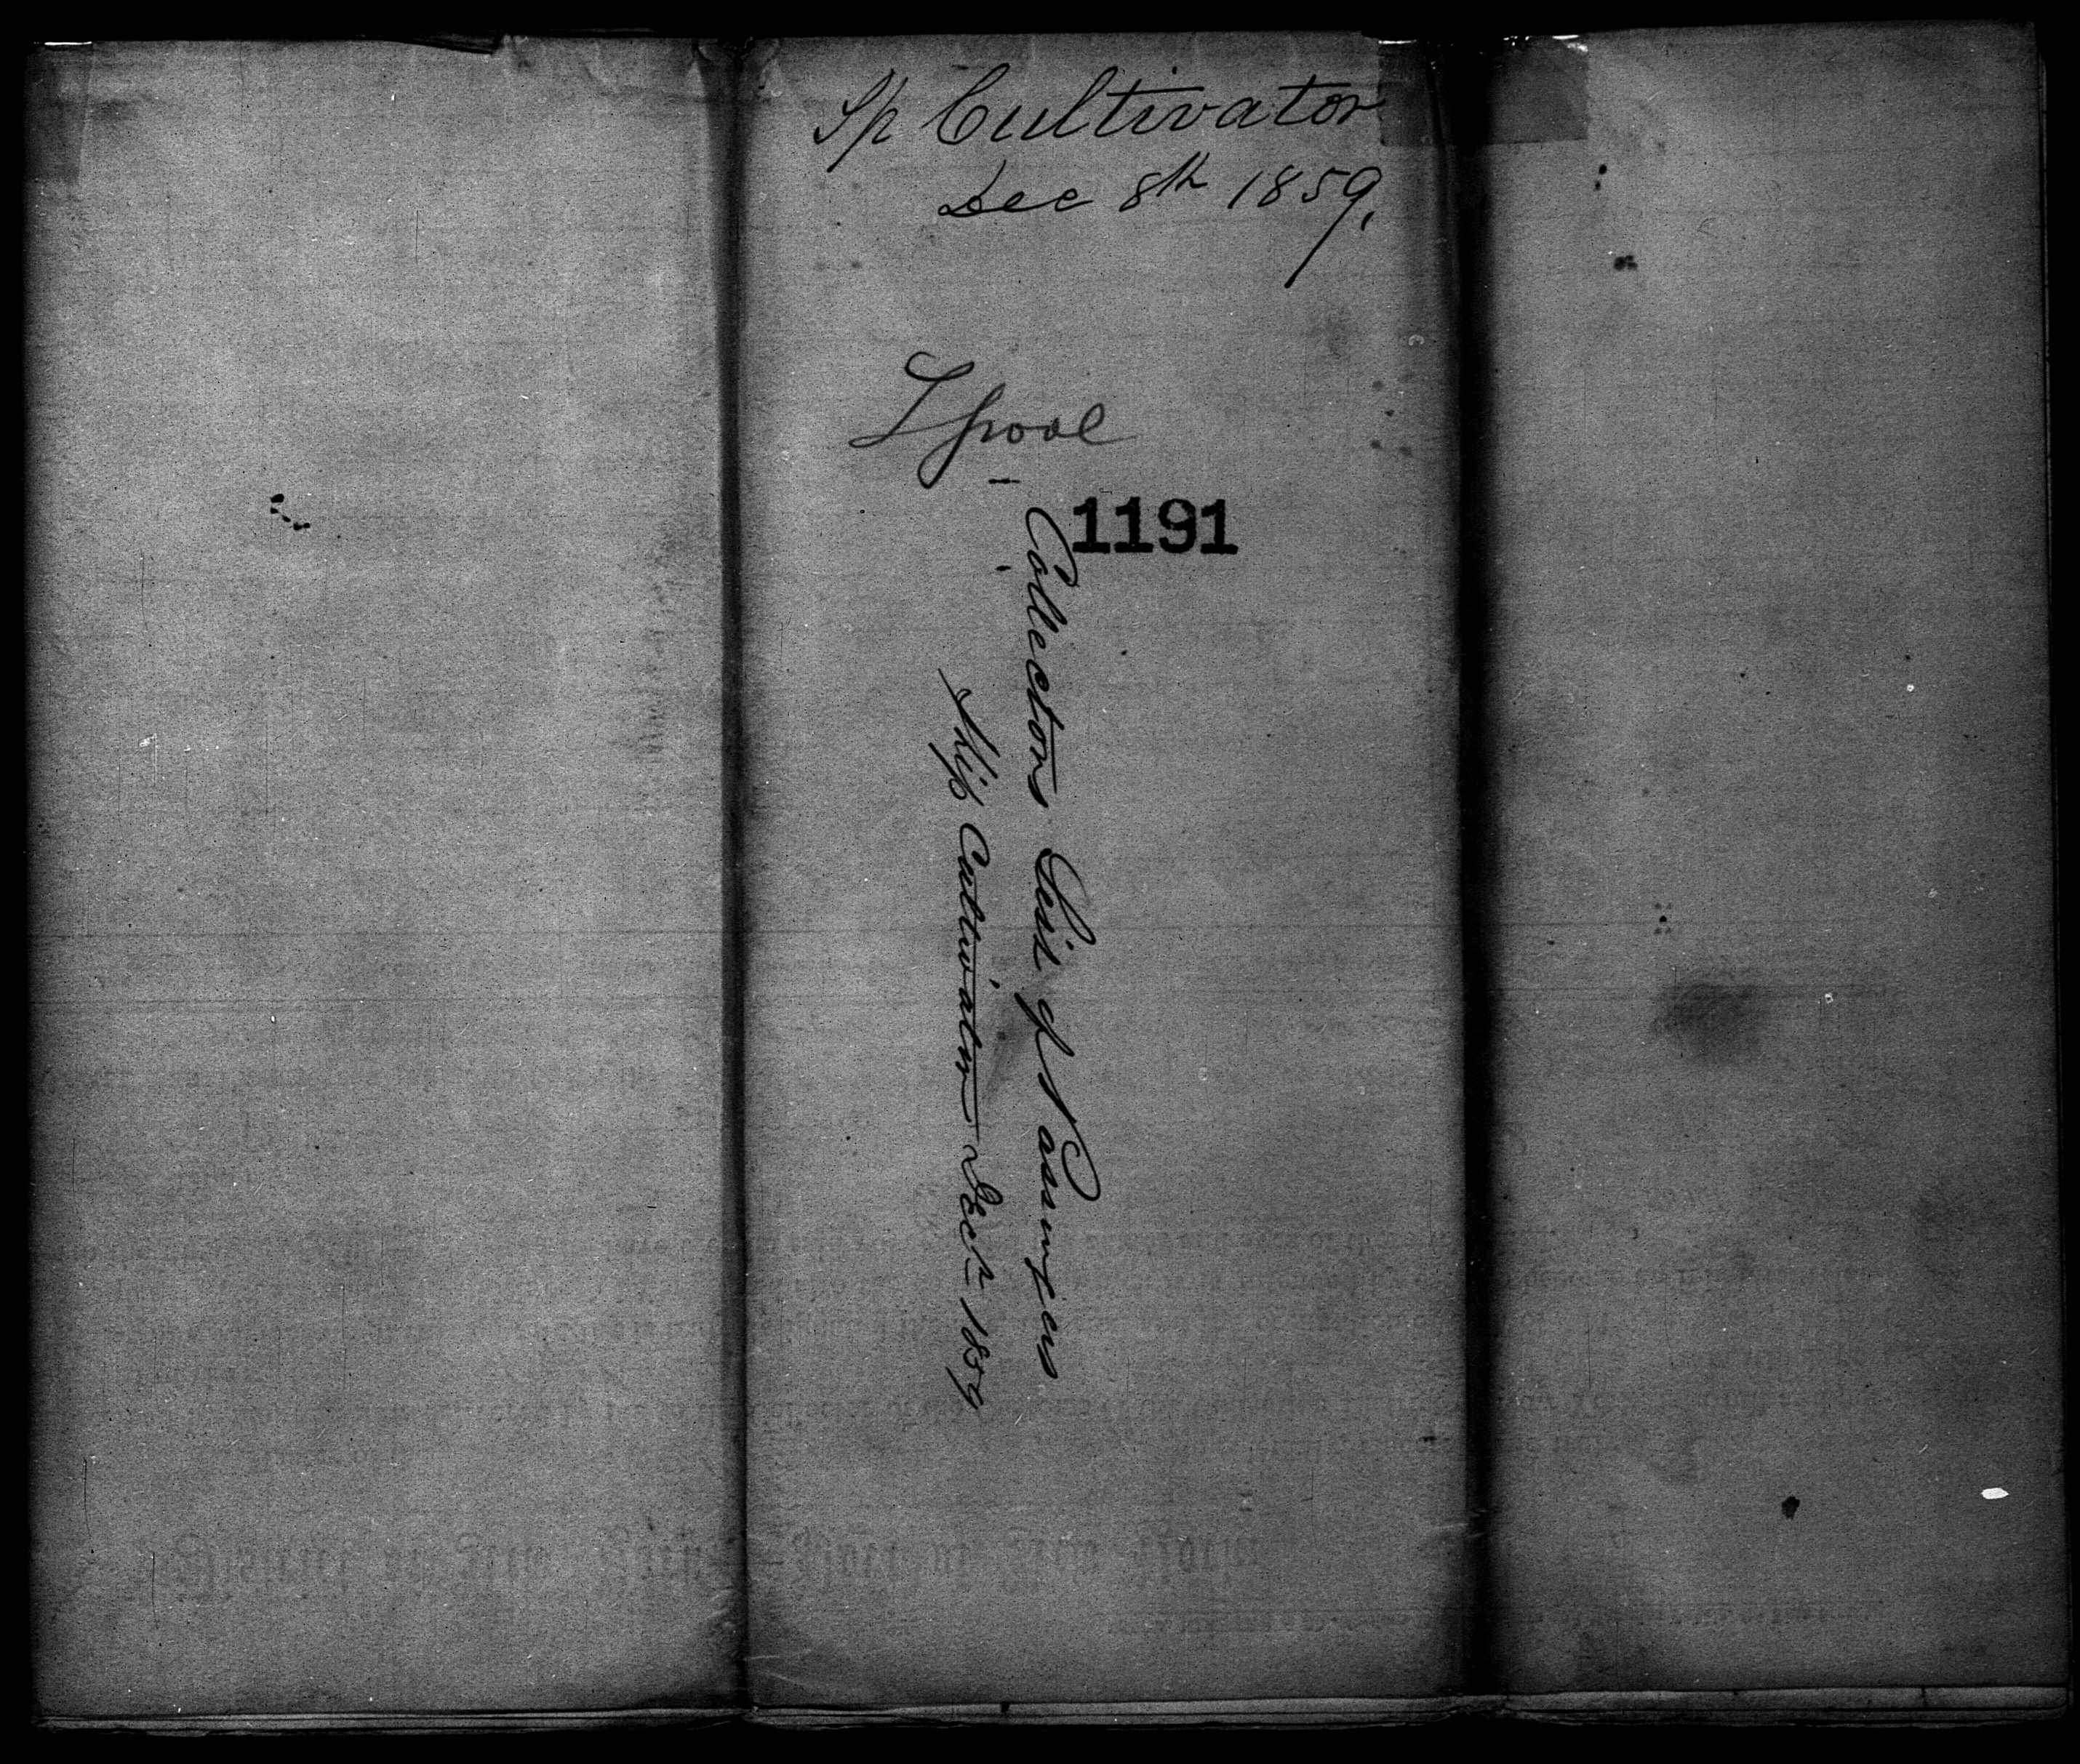 Sp Cultivator
Dec 8th 1859.
Lpool
1191
Collectors List of Passengers
Ship Cultivator Dect 1859